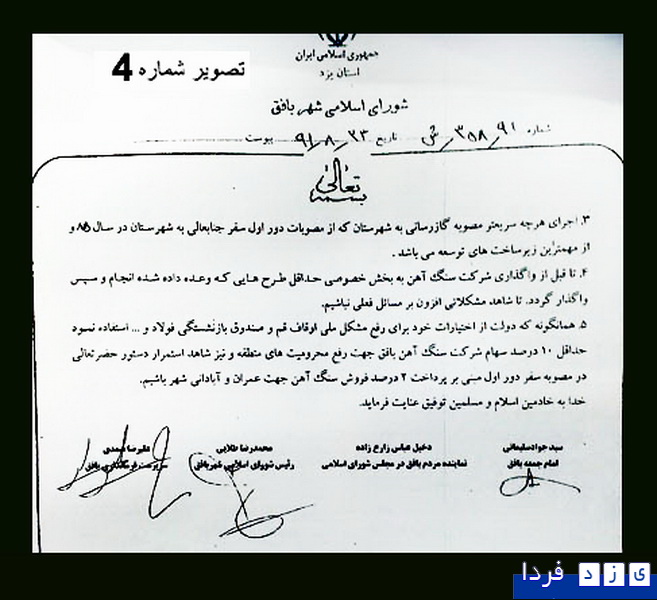 تصویر شماره 4
جمهوری اسلامی ایران
استان یزد
شورای اسلامی شهر بافق
شماره ۹۱/۳۵۸/ش تاریخ ۹۱/۸/۲۳ پیوست
بسمه تعالی
۳. اجرای هرچه سریعتر مصوبه گازرسانی به شهرستان که از مصوبات دور اول سفر جنابعالی به شهرستان در سال ۸۵ و
از مهمترین زیرساخت های توسعه می باشد .
۴. تا قبل از واگذاری شرکت سنگ آهن به بخش خصوصی حداقل طرح هایی که وعده داده شده انجام و سپس
واگذار گردد. تا شاهد مشکلاتی افزون بر مسائل فعلی نباشیم.
۵. همانگونه که دولت از اختیارات خود برای رفع مشکل ملی اوقاف قم و صندوق بازنشستگی فولاد و ... استفاده نمود
حداقل ۱۰ درصد سهام شرکت سنگ آهن بافق جهت رفع محرومیت های منطقه و نیز شاهد استمرار دستور حضرتعالی
در مصوبه سفر دور اول مبنی بر پرداخت ۲ درصد فروش سنگ آهن جهت عمران و آبادانی شهر باشیم.
خدا به خادمین اسلام و مسلمین توفیق عنایت فرماید.
سید جواد سلیمانی دخیل عباس زارع زاده محمدرضا طلایی علیرضا صمدی
امام جمعه بافق نماینده مردم بافق در مجلس شورای اسلامی رئیس شورای اسلامی شهر بافق سرپرست فرمانداری بافق
یزد فردا